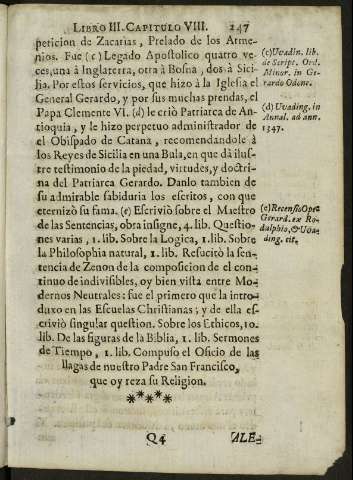 LIBRO III. CAPITULO VIII. 247
peticion de Zacarias, Prelado de los Arme-
nios. Fue (c) Legado Apostolico quatro ve-
ces, una à Inglaterra, otra à Bosna, dos à Sici-
lia. Por estos servicios, que hizo à la Iglesia el
General Gerardo, y por sus muchas prendas, el
Papa Clemente VI. (d) le criò Patriarca de An-
tioquia, y le hizo perpetuo administrador de
el Obispado de Catana, recomendandole à
los Reyes de Sicilia en una Bula, en que dà ilus-
tre testimonio de la piedad, virtudes, y doctri-
na del Patriarca Gerardo. Danlo tambien de
su admirable sabiduria los escritos, con que
eternizò su fama. (e) Escriviò sobre el Maestro
de las Sentencias, obra insigne, 4. lib. Questio-
nes varias, 1. lib. Sobre la Logica, 1. lib. Sobre
la Philosophia natural, 1. lib. Resucitò la sen-
tencia de Zenon de la composicion de el con-
tinuo de indivisibles, oy bien vista entre Mo-
dernos Neutrales: fue el primero que la intro-
duxo en las Escuelas Christianas; y de ella es-
criviò singular question. Sobre los Ethicos, 10.
lib. De las figuras de la Biblia, 1. lib. Sermones
de Tiempo, 1. lib. Compuso el Oficio de las
llagas de nuestro Padre San Francisco,
que oy reza su Religion.
*****
Q4 ALE-
(c) Uvadin. lib.
de Script. Ord.
Minor. in Ge-
rardo Odone.
(d) Uvading. in
Annal. ad ann.
1347.
(e) Recensio Ope.
Gerard. ex Ro-
dulphio, & Uva-
ding. cit.